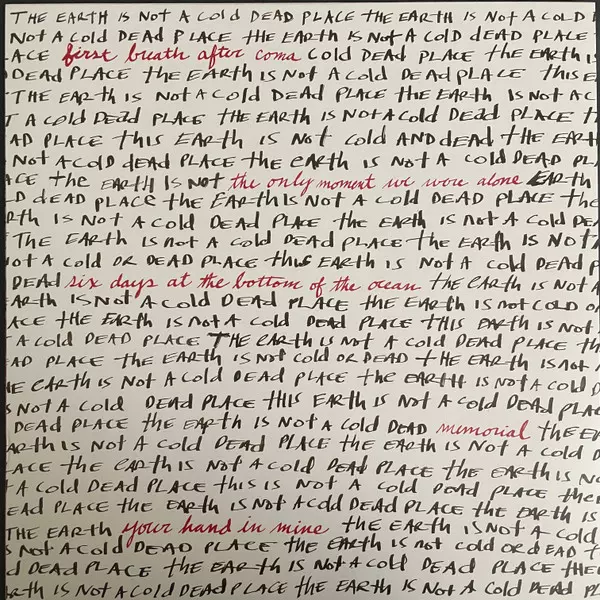 THE EARTH IS NOT A COld DEAD PLACE THE EARTH IS NOT A COLD
NOT A COLD DEAD PLACE tHE EARTH IS NOT A COLD dEAD PLACE
ACE first breath after coma COLD DEAD PLACE the EARTH IS
DEAD PLACE the EARTH IS Not A Cold DEAd pLACE this E
THE EARTH IS NOt A COLD DEAD PLACE tHE EARTH IS NOt A C
T A cold DEad PLACE THE EARTH IS NOt A Cold DEad PLACE t
AD PLACE tHIS EARTH IS Not Cold AND dEAd tHE EART
Not A COLD dEAd PLACE tHE eARtH IS NOT A COLD DEAD PL
ACE the EARTH IS NOT the only moment we were alone EARth
D dEAD pLACE the EARtH IS Not A COLD DEAD PLACE the
Rth IS Not A COLD DEAD PLACE the EARTH IS NOt A COLD DEA
THE EARTH IS not A cold DEAd PLACE the EARth IS NOT
ot A cold OR DEAD PLACE this EARtH IS Not A cold DEAd P
DEAD six days at the bottom of the ocean the EARtH IS NOt A
ARth IS NOt A Cold DEAD PLACE the EARTH IS not COLD O
ACE tHE EARTH IS not A cold DEAD PLACE tHIS EARTH IS Not
A cold DEAD PLACE THE EARtH IS not A cold DEAD PLACE th
AD PLACE the EARTH IS NOt COLD OR DEAD tHE EARTH IS not A
E eARtH IS Not A Cold DEAD PLACE the EARTH IS NOt A COLD D
S Not A Cold DEAD PLACE tHIS EARTH IS Not A COLD DEAD PLAC
DEAD PLACE the EARTH IS NOT A COLD DEAD memorial THE EA
ARth IS Not A Cold DEAD PLACE the EARTH IS NOT A COLD D
ACE the EARTH IS NOT A Cold DEAD PLACE tHE EARTH IS NO
A COLD DEAD PLACE this IS NOT A COLD DEAD PLACE the
EAd PLACE the EARtH IS NOt A Cold DEAD PLACE tHE EARTH IS
THE EARTH your hand in mine tHE EARTH IS NOt A COLD
S NOt A Cold DEAD PLACE the EARTH IS not COLD OR dEAD t
d DEAD PLACE THE EARTH IS Not A Cold DEAD PLACE THE
Rth IS NOt A Cold DEAD PLACE tHE EARTH IS Not A COLD DEAd PL